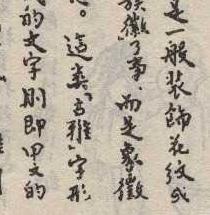 是一般装飾花紋或
族徽了事，而是象徵
。這类“古雅”字形
的文字則即甲文的